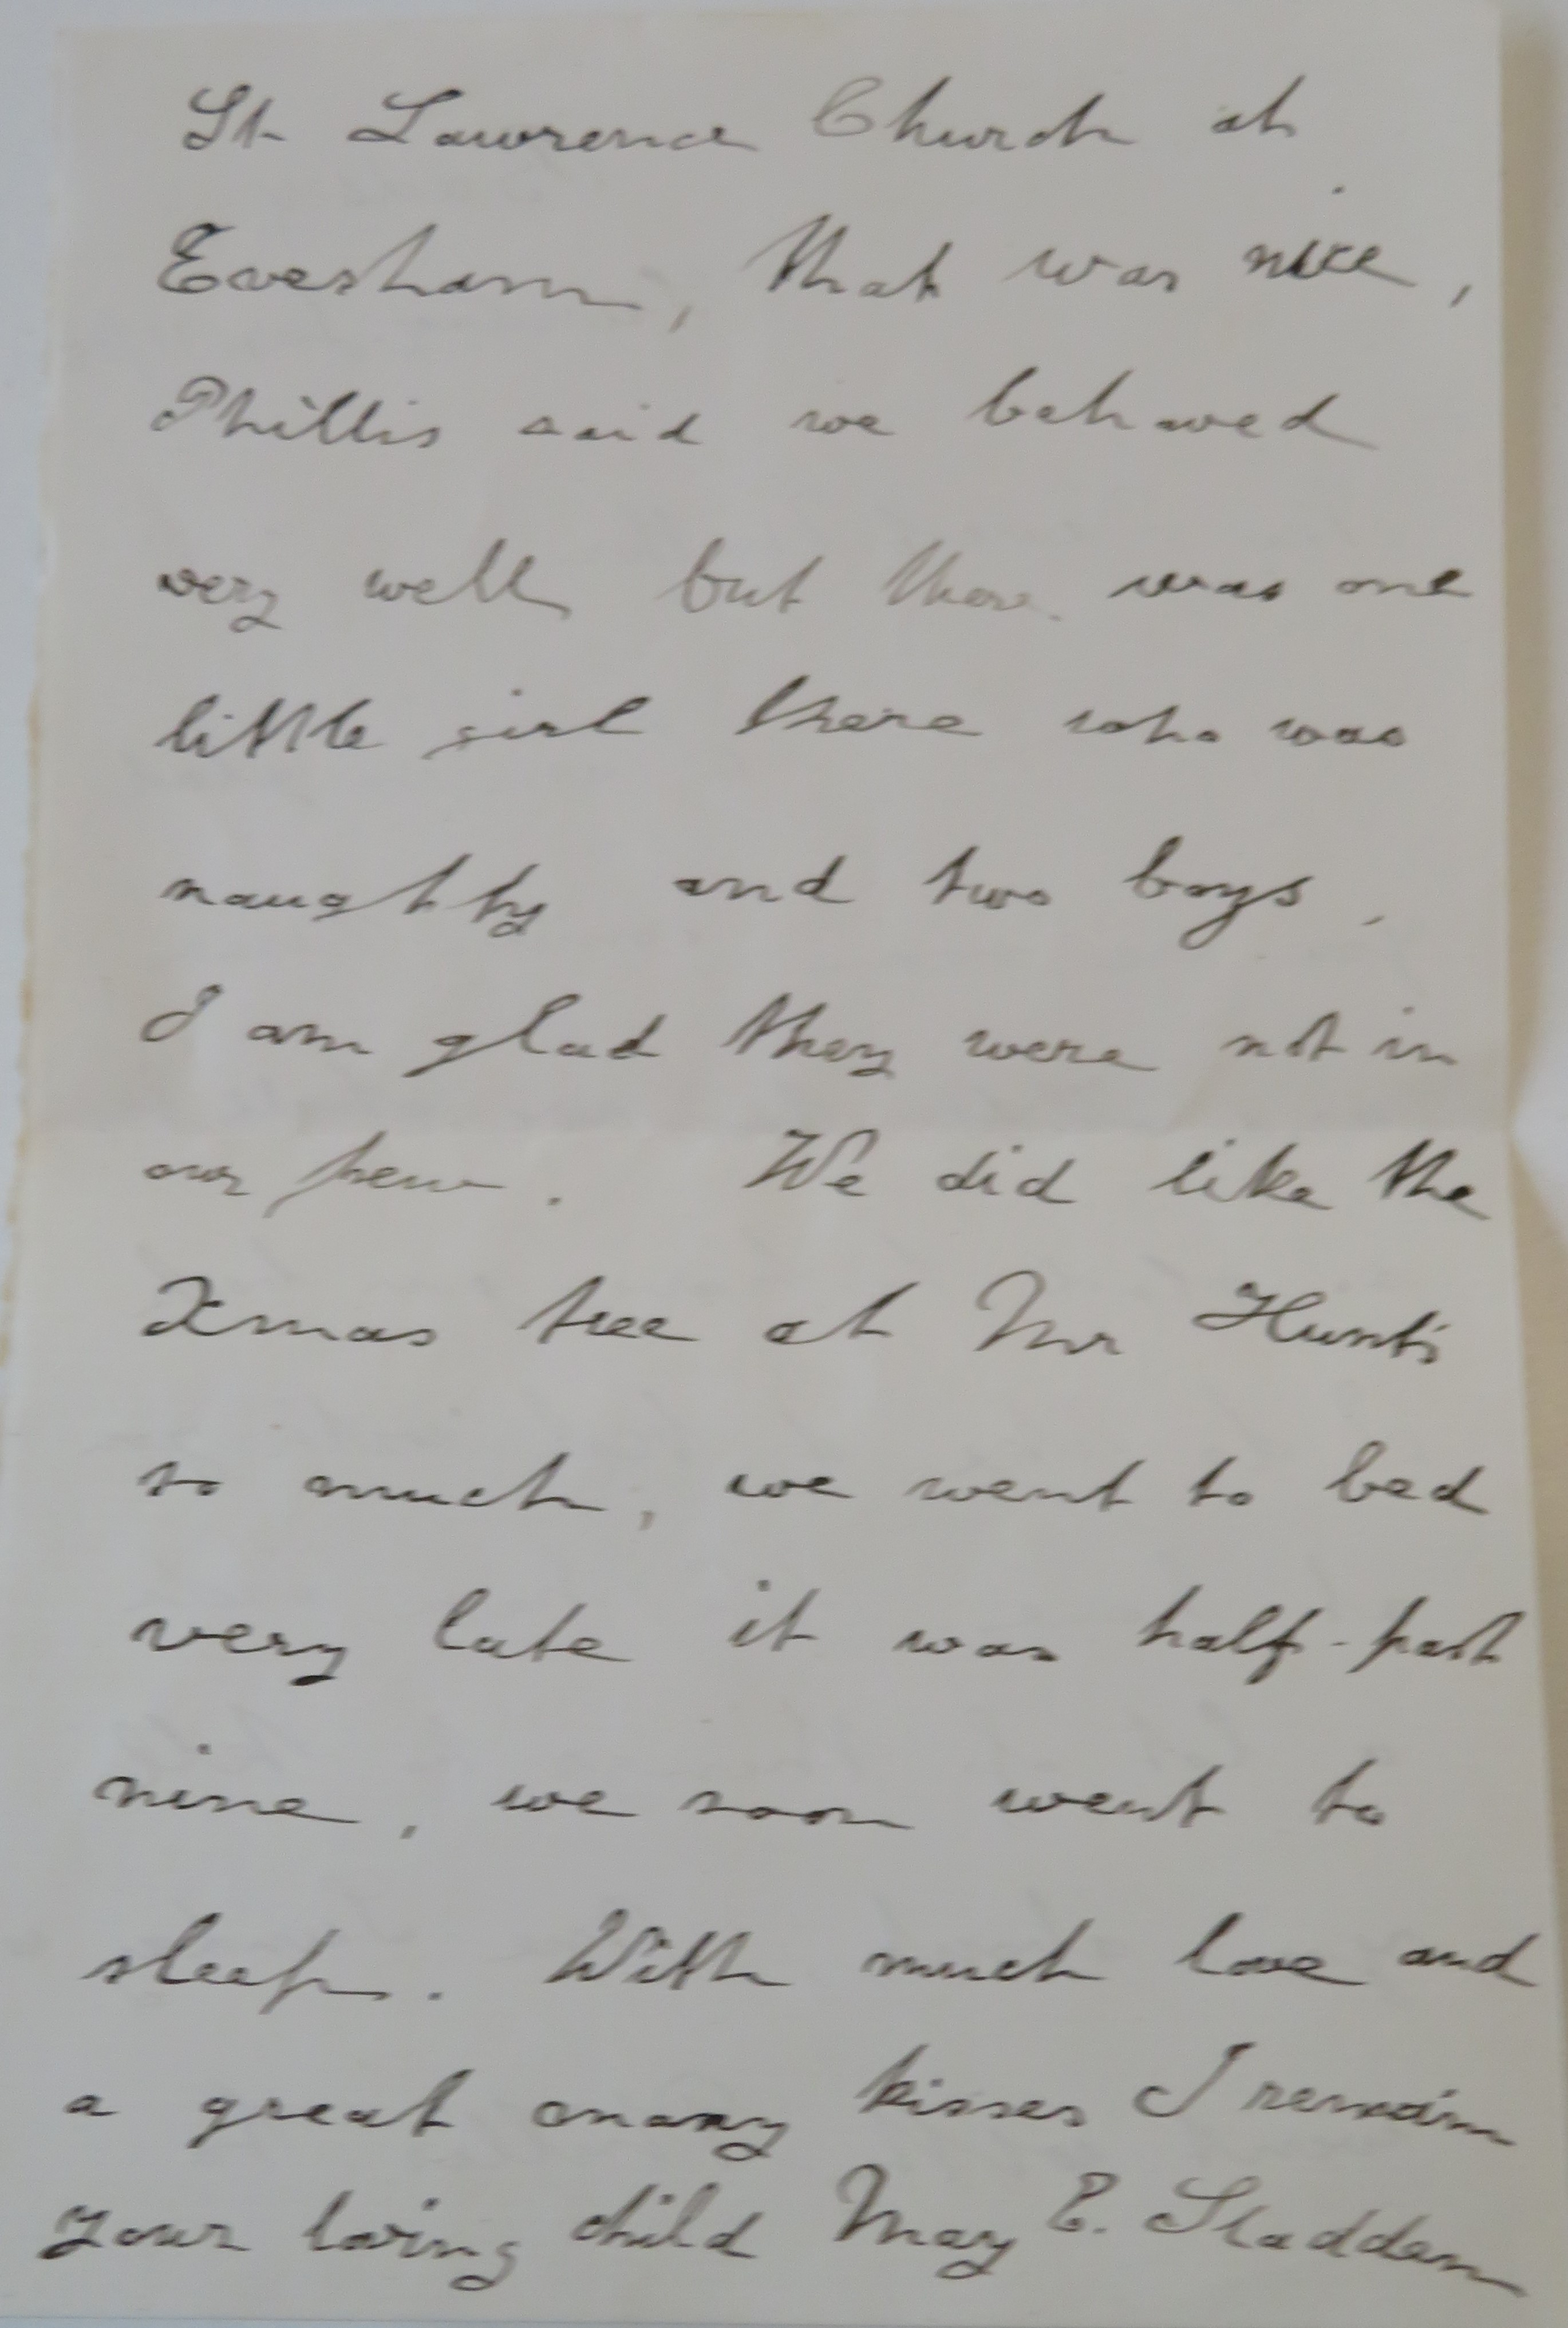 St Lawrence Church at
Evesham, that was nice,
Phillis said we behaved
very well but there was one
little girl there who was
naughty and two boys,
I am glad they were not in
our pew. We did like the
Xmas tree at Mr Hunt's
so much, we went to bed
very late it was half-past
nine, we soon went to
sleep. With much love and
a great many kisses I remain
your loving child May E. Sladden